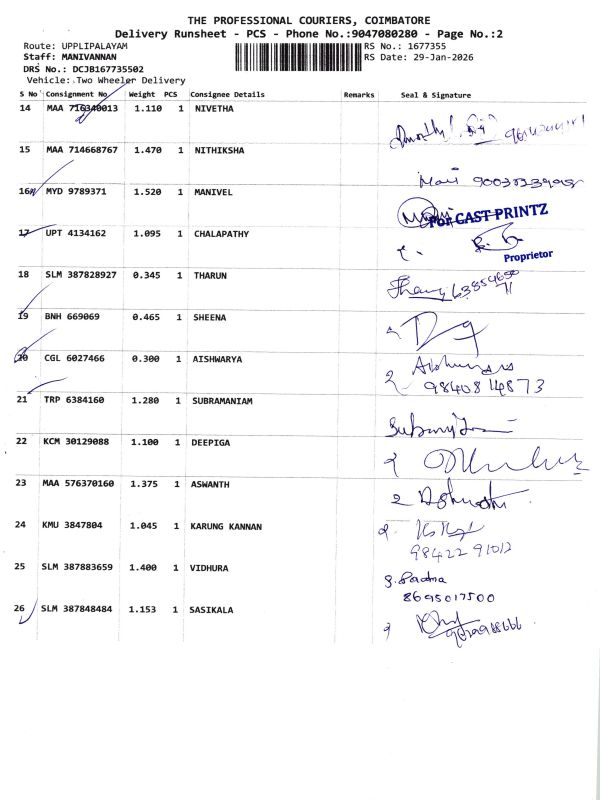 THE PROFESSIONAL COURIERS, COIMBATORE
Delivery Runsheet - PCS - Phone No.:9047080280 - Page No.:2
Route: UPPLIPALAYAM RS No.: 1677355
Staff: MANIVANNAN RS Date: 29-Jan-2026
DRS No.: DCJB167735502
Vehicle: Two Wheeler Delivery
S No Consignment No Weight PCS Consignee Details Remarks Seal & Signature
14 MAA 716340013 1.110 1 NIVETHA
15 MAA 714668767 1.470 1 NITHIKSHA
16 MYD 9789371 1.520 1 MANIVEL
For CAST PRINTZ
17 UPT 4134162 1.095 1 CHALAPATHY
Proprietor
18 SLM 387828927 0.345 1 THARUN
19 BNH 669069 0.465 1 SHEENA
20 CGL 6027466 0.300 1 AISHWARYA
9840814873
21 TRP 6384160 1.280 1 SUBRAMANIAM
22 KCM 30129088 1.100 1 DEEPIGA
23 MAA 576370160 1.375 1 ASWANTH
24 KMU 3847804 1.045 1 KARUNG KANNAN
98422 91012
25 SLM 387883659 1.400 1 VIDHURA
8695017500
26 SLM 387848484 1.153 1 SASIKALA